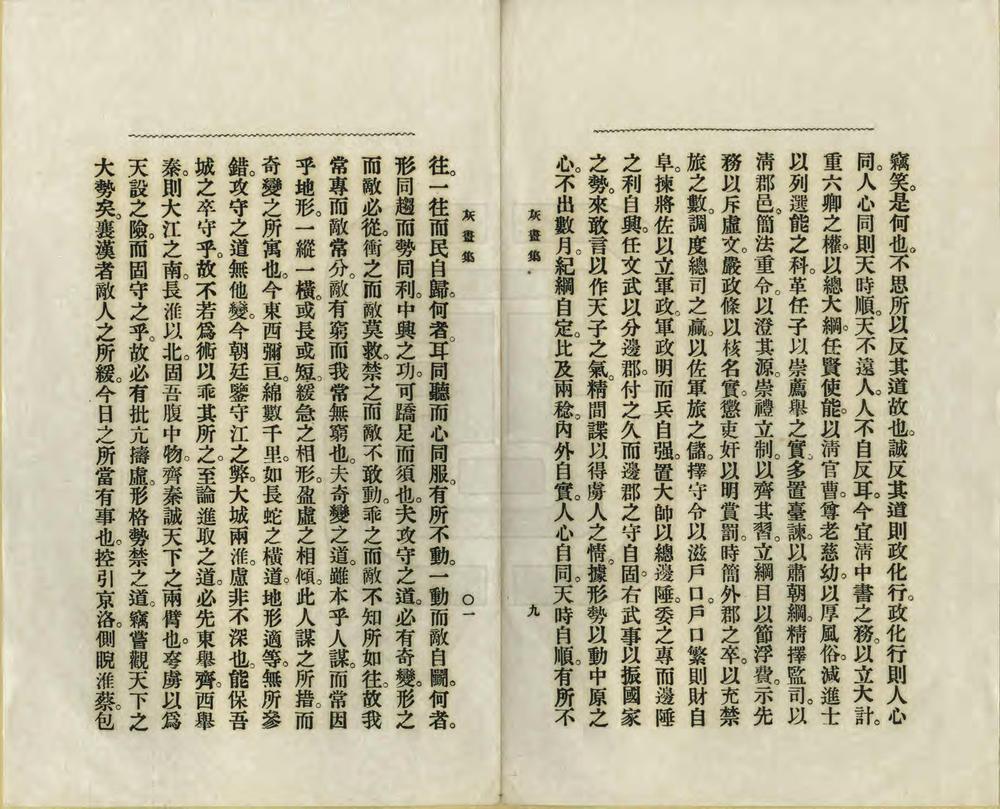 竊笑是何也。不思所以反其道故也。誠反其道則政化行。政化行則人心
同。人心同則天時順。天不遠人。人不自反耳。今宜清中書之務。以立大計。
重六卿之權。以總大綱。任賢使能。以清官曹。尊老慈幼。以厚風俗。減進士
以列選能之科。革任子以崇薦舉之實。多置臺諫。以肅朝綱。精擇監司。以
清郡邑。簡法重令。以澄其源。崇禮立制。以齊其習。立綱目以節浮費。示先
務以斥虛文。嚴政條以核名實。懲吏奸以明賞罰。時簡外郡之卒。以充禁
旅之數。調度總司之贏。以佐軍旅之儲。擇守令以滋戶口。戶口繁則財自
阜。揀將佐以立軍政。軍政明而兵自强。置大帥以總邊陲。委之專而邊陲
之利自興。任文武以分邊郡。付之久而邊郡之守自固。右武事以振國家
之勢。來敢言以作天子之氣。精間諜以得虜人之情。據形勢以動中原之
心。不出數月。紀綱自定。比及兩稔。內外自實。人心自同。天時自順。有所不
灰畫集
九
灰畫集
一〇
往。一往而民自歸。何者。耳同聽而心同服。有所不動。一動而敵自鬬。何者。
形同趨而勢同利。中興之功。可蹻足而須也。夫攻守之道。必有奇變。形之
而敵必從。衝之而敵莫救。禁之而敵不敢動。乖之而敵不知所如往。故我
常專而敵常分。敵有窮而我常無窮也。夫奇變之道。雖本乎人謀。而常因
乎地形。一縱一橫。或長或短。緩急之相形。盈虛之相傾。此人謀之所措。而
奇變之所寓也。今東西彌亘。綿數千里。如長蛇之橫道。地形適等。無所參
錯。攻守之道無他變。今朝廷鑒守江之弊。大城兩淮。慮非不深也。能保吾
城之卒守乎。故不若爲術以乖其所之。至論進取之道。必先東舉齊。西舉
秦。則大江之南。長淮以北。固吾腹中物。齊秦誠天下之兩臂也。夸虜以爲
天設之險。而固守之乎。故必有批亢擣虛。形格勢禁之道。竊嘗觀天下之
大勢矣。襄漢者敵人之所緩。今日之所當有事也。控引京洛。側睨淮蔡。包